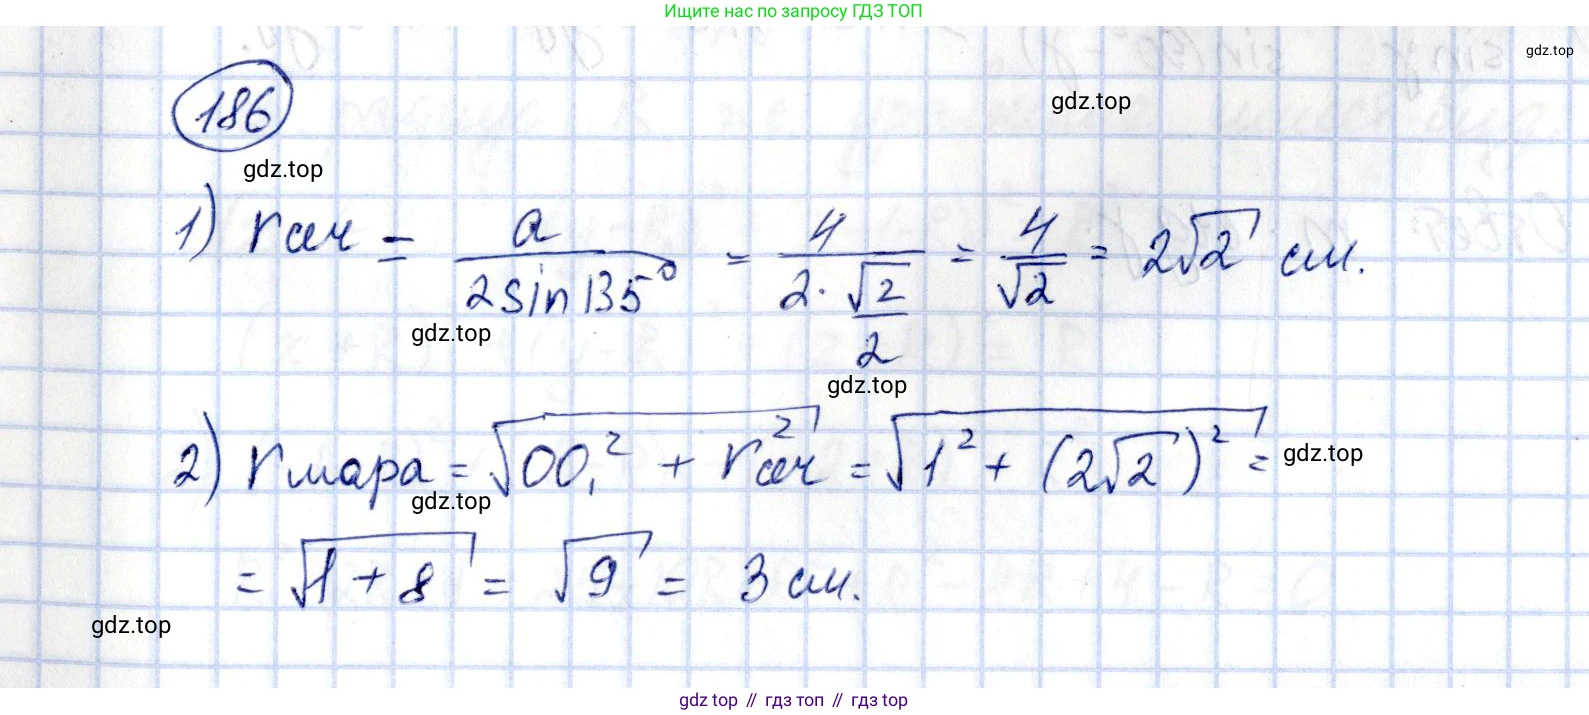 Ищите нас по запросу ГДЗ ТОП
gdz.top
186
gdz.top
gdz.top
1) rсеч = a / (2 sin 135°) = 4 / (2 · √2/2) = 4/√2 = 2√2 см.
gdz.top
gdz.top
2) rшара = √(OO₁² + rсеч²) = √(1² + (2√2)²) =
gdz.top
gdz.top
= √(1 + 8) = √9 = 3 см.
gdz.top
gdz top // гдз топ // гдз top